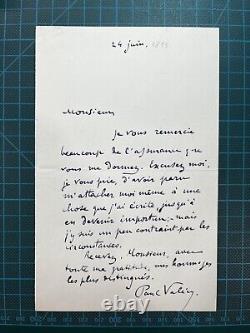 24 juin.
Monsieur
Je vous remercie
beaucoup de l'assurance que
vous me donnez. Excusez moi,
je vous prie, d'avoir paru
m'attacher moi même à une
chose que j'ai écrite, jusqu'à
en devenir importun, mais
j'y suis un peu contraint par les
circonstances.
Recevez, Monsieur, avec
toute ma gratitude, mes hommages
les plus distingués.
Paul Valéry